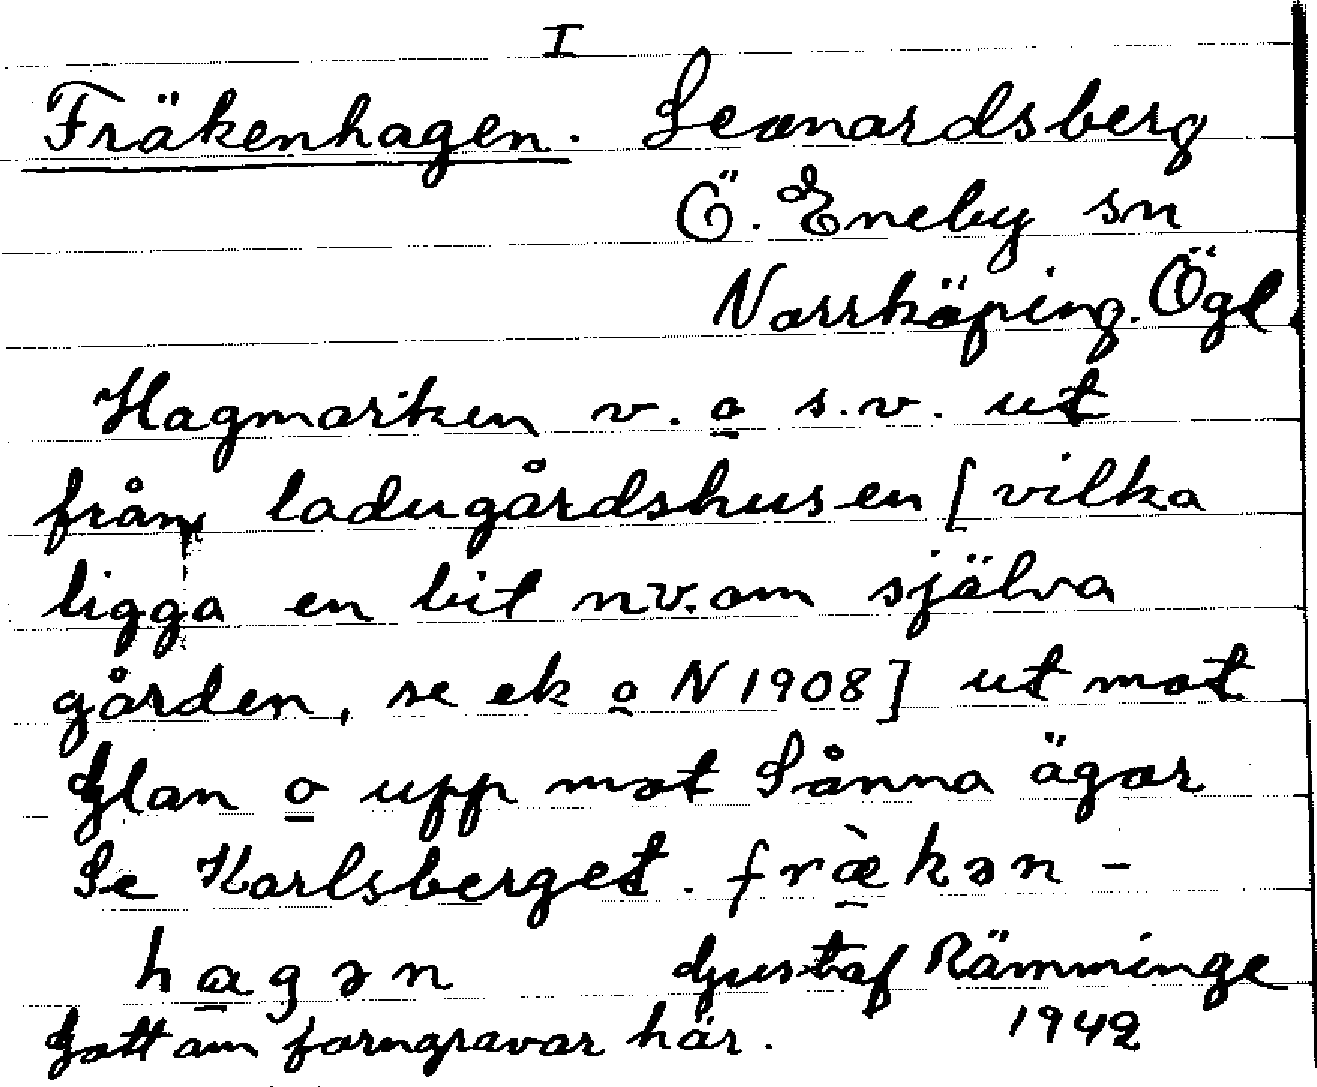 I
Fräkenhagen. Leonardsberg
Ö. Eneby sn
Norrköping. Ögl.
Hagmarken v. o s.v. ut
från ladugårdshusen [vilka
ligga en bit nv. om själva
gården, se ek o N 1908] ut mot
Glan o upp mot Sånna ägor
Se Karlsberget. fræ̀kən-
hagən Gustaf Rämminge
Gott om forngravar här. 1942